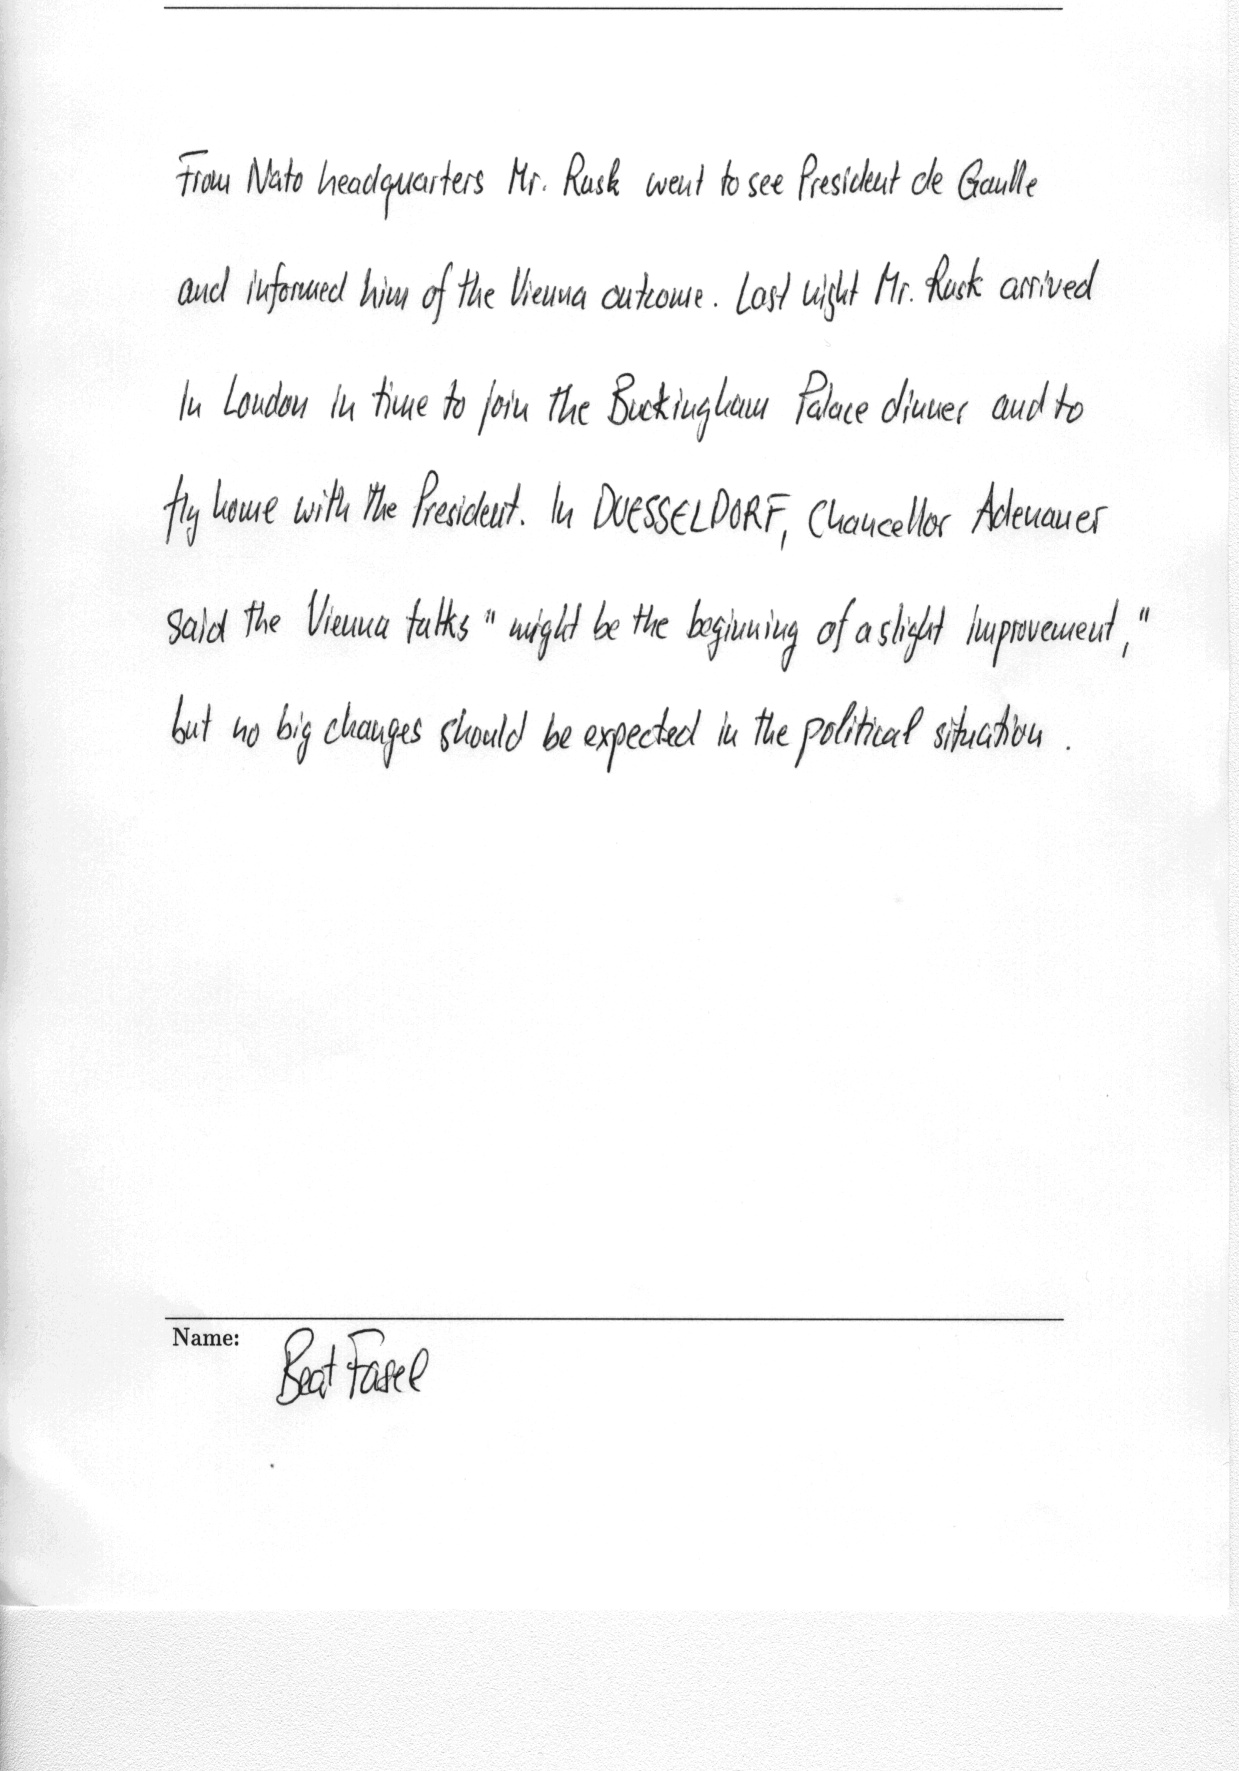 From Nato headquarters Mr. Rusk went to see President de Gaulle
and informed him of the Vienna outcome. Last night Mr. Rusk arrived
in London in time to join the Buckingham Palace dinner and to
fly home with the President. In DUESSELDORF, Chancellor Adenauer
said the Vienna talks "might be the beginning of a slight improvement,"
but no big changes should be expected in the political situation.
Name:
Beat Fasel